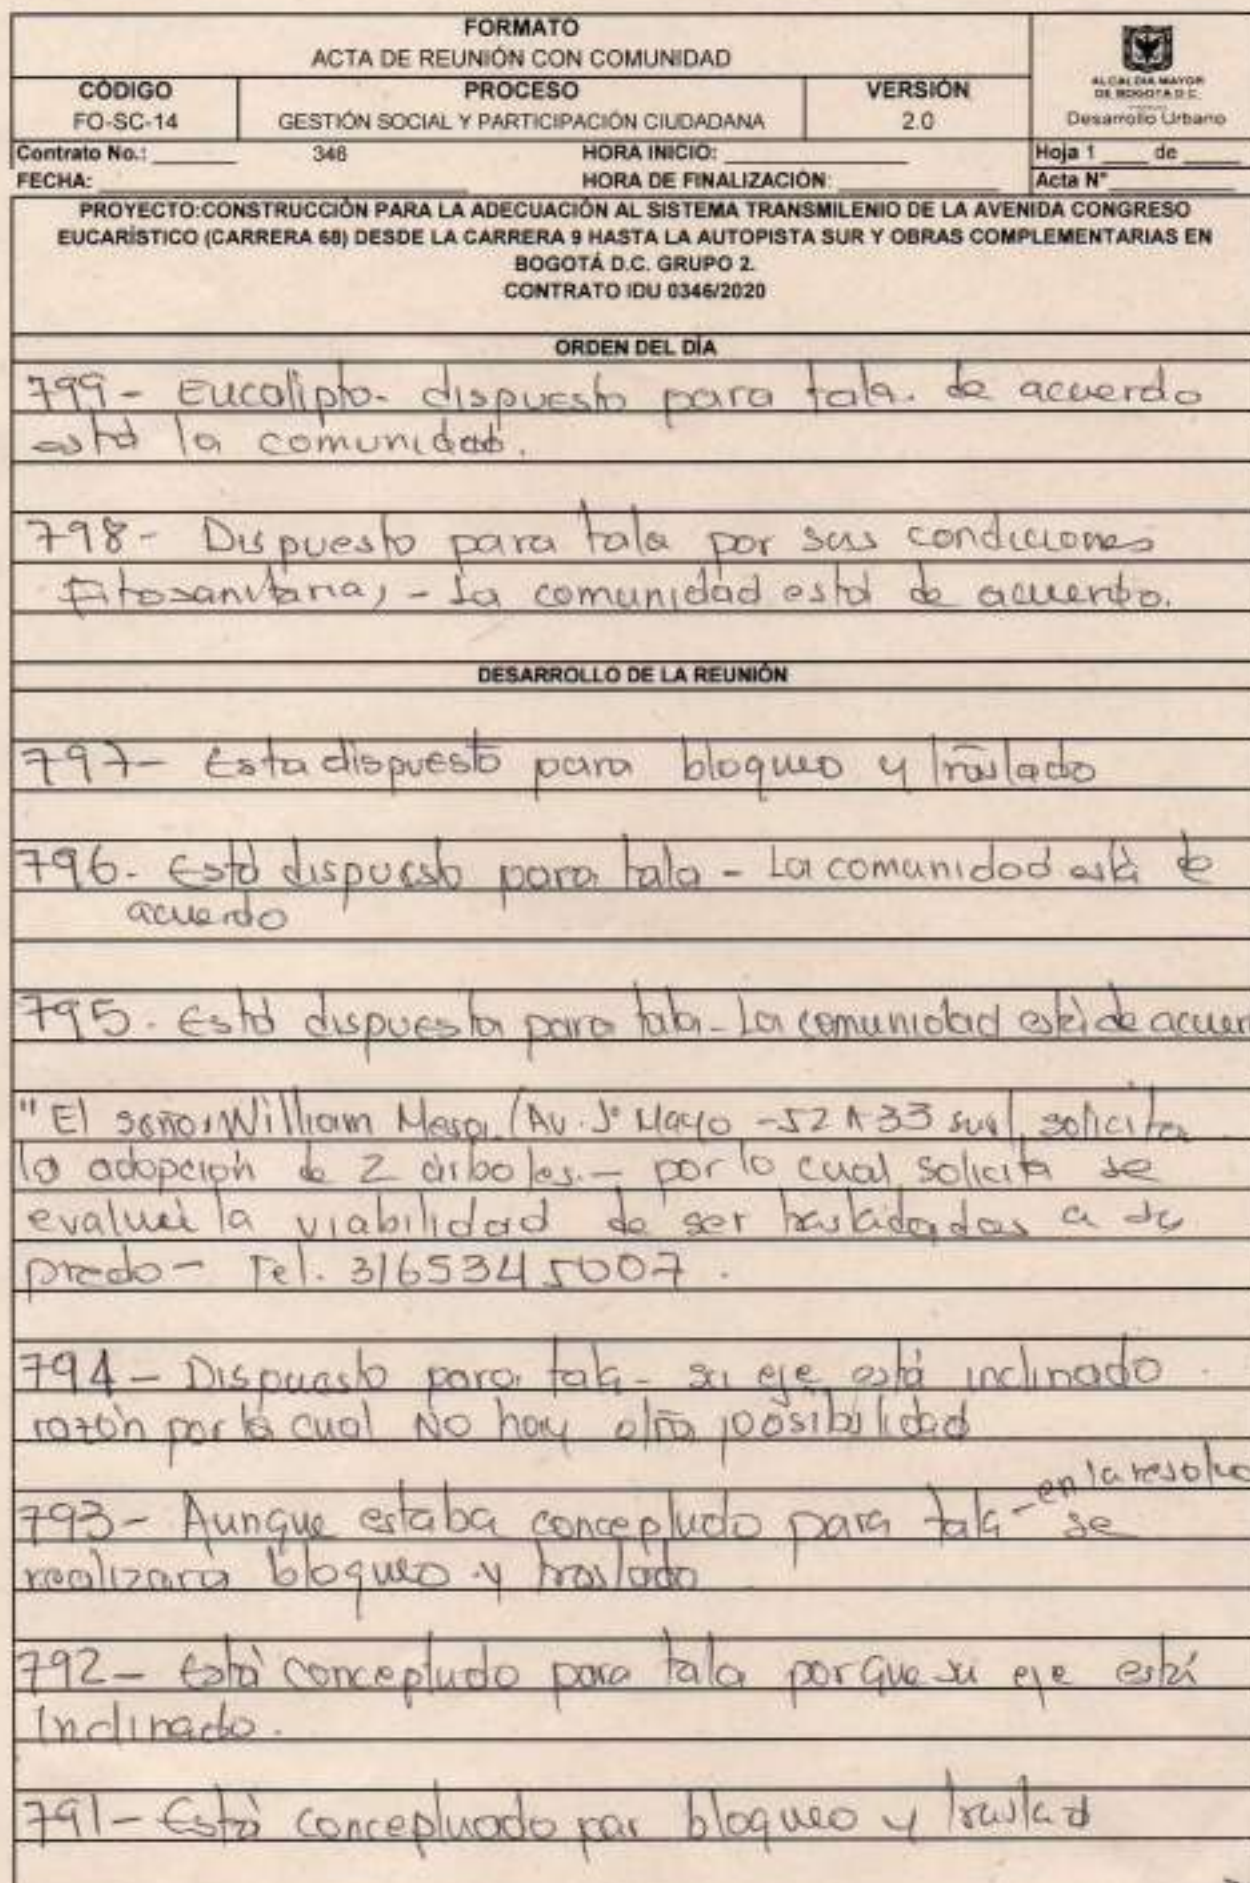 FORMATO
ACTA DE REUNIÓN CON COMUNIDAD
CÓDIGO
FO-SC-14
PROCESO
GESTIÓN SOCIAL Y PARTICIPACIÓN CIUDADANA
VERSIÓN
2.0
ALCALDÍA MAYOR
DE BOGOTÁ D.C.
Desarrollo Urbano
Contrato No.: 346 HORA INICIO: Hoja 1 de
FECHA: HORA DE FINALIZACIÓN: Acta N°
PROYECTO:CONSTRUCCIÓN PARA LA ADECUACIÓN AL SISTEMA TRANSMILENIO DE LA AVENIDA CONGRESO
EUCARÍSTICO (CARRERA 68) DESDE LA CARRERA 9 HASTA LA AUTOPISTA SUR Y OBRAS COMPLEMENTARIAS EN
BOGOTÁ D.C. GRUPO 2.
CONTRATO IDU 0346/2020
ORDEN DEL DÍA
799- Eucalipto- dispuesto para tala. de acuerdo
está la comunidad.
798- Dispuesto para tala por sus condiciones
Fitosanitarias - La comunidad está de acuerdo.
DESARROLLO DE LA REUNIÓN
797- Esta dispuesto para bloqueo y traslado
796- Está dispuesto para tala - La comunidad está de
acuerdo
795- Está dispuesta para tala - La comunidad está de acuer
"El señor William Mesa (Av. 1° Mayo -52 A-33 sur), solicita
la adopción de 2 árboles.- por lo cual solicita se
evalué la viabilidad de ser trasladados a su
predo- Tel. 3165345007.
794- Dispuesto para tala- su eje está inclinado
razón por la cual NO hay otra posibilidad
793- Aunque estaba concepludo para tala - en la resoluc
se
realizara bloqueo y traslado
792- Está concepludo para tala porque su eje está
Inclinado.
791- Está concepluado par bloqueo y traslad